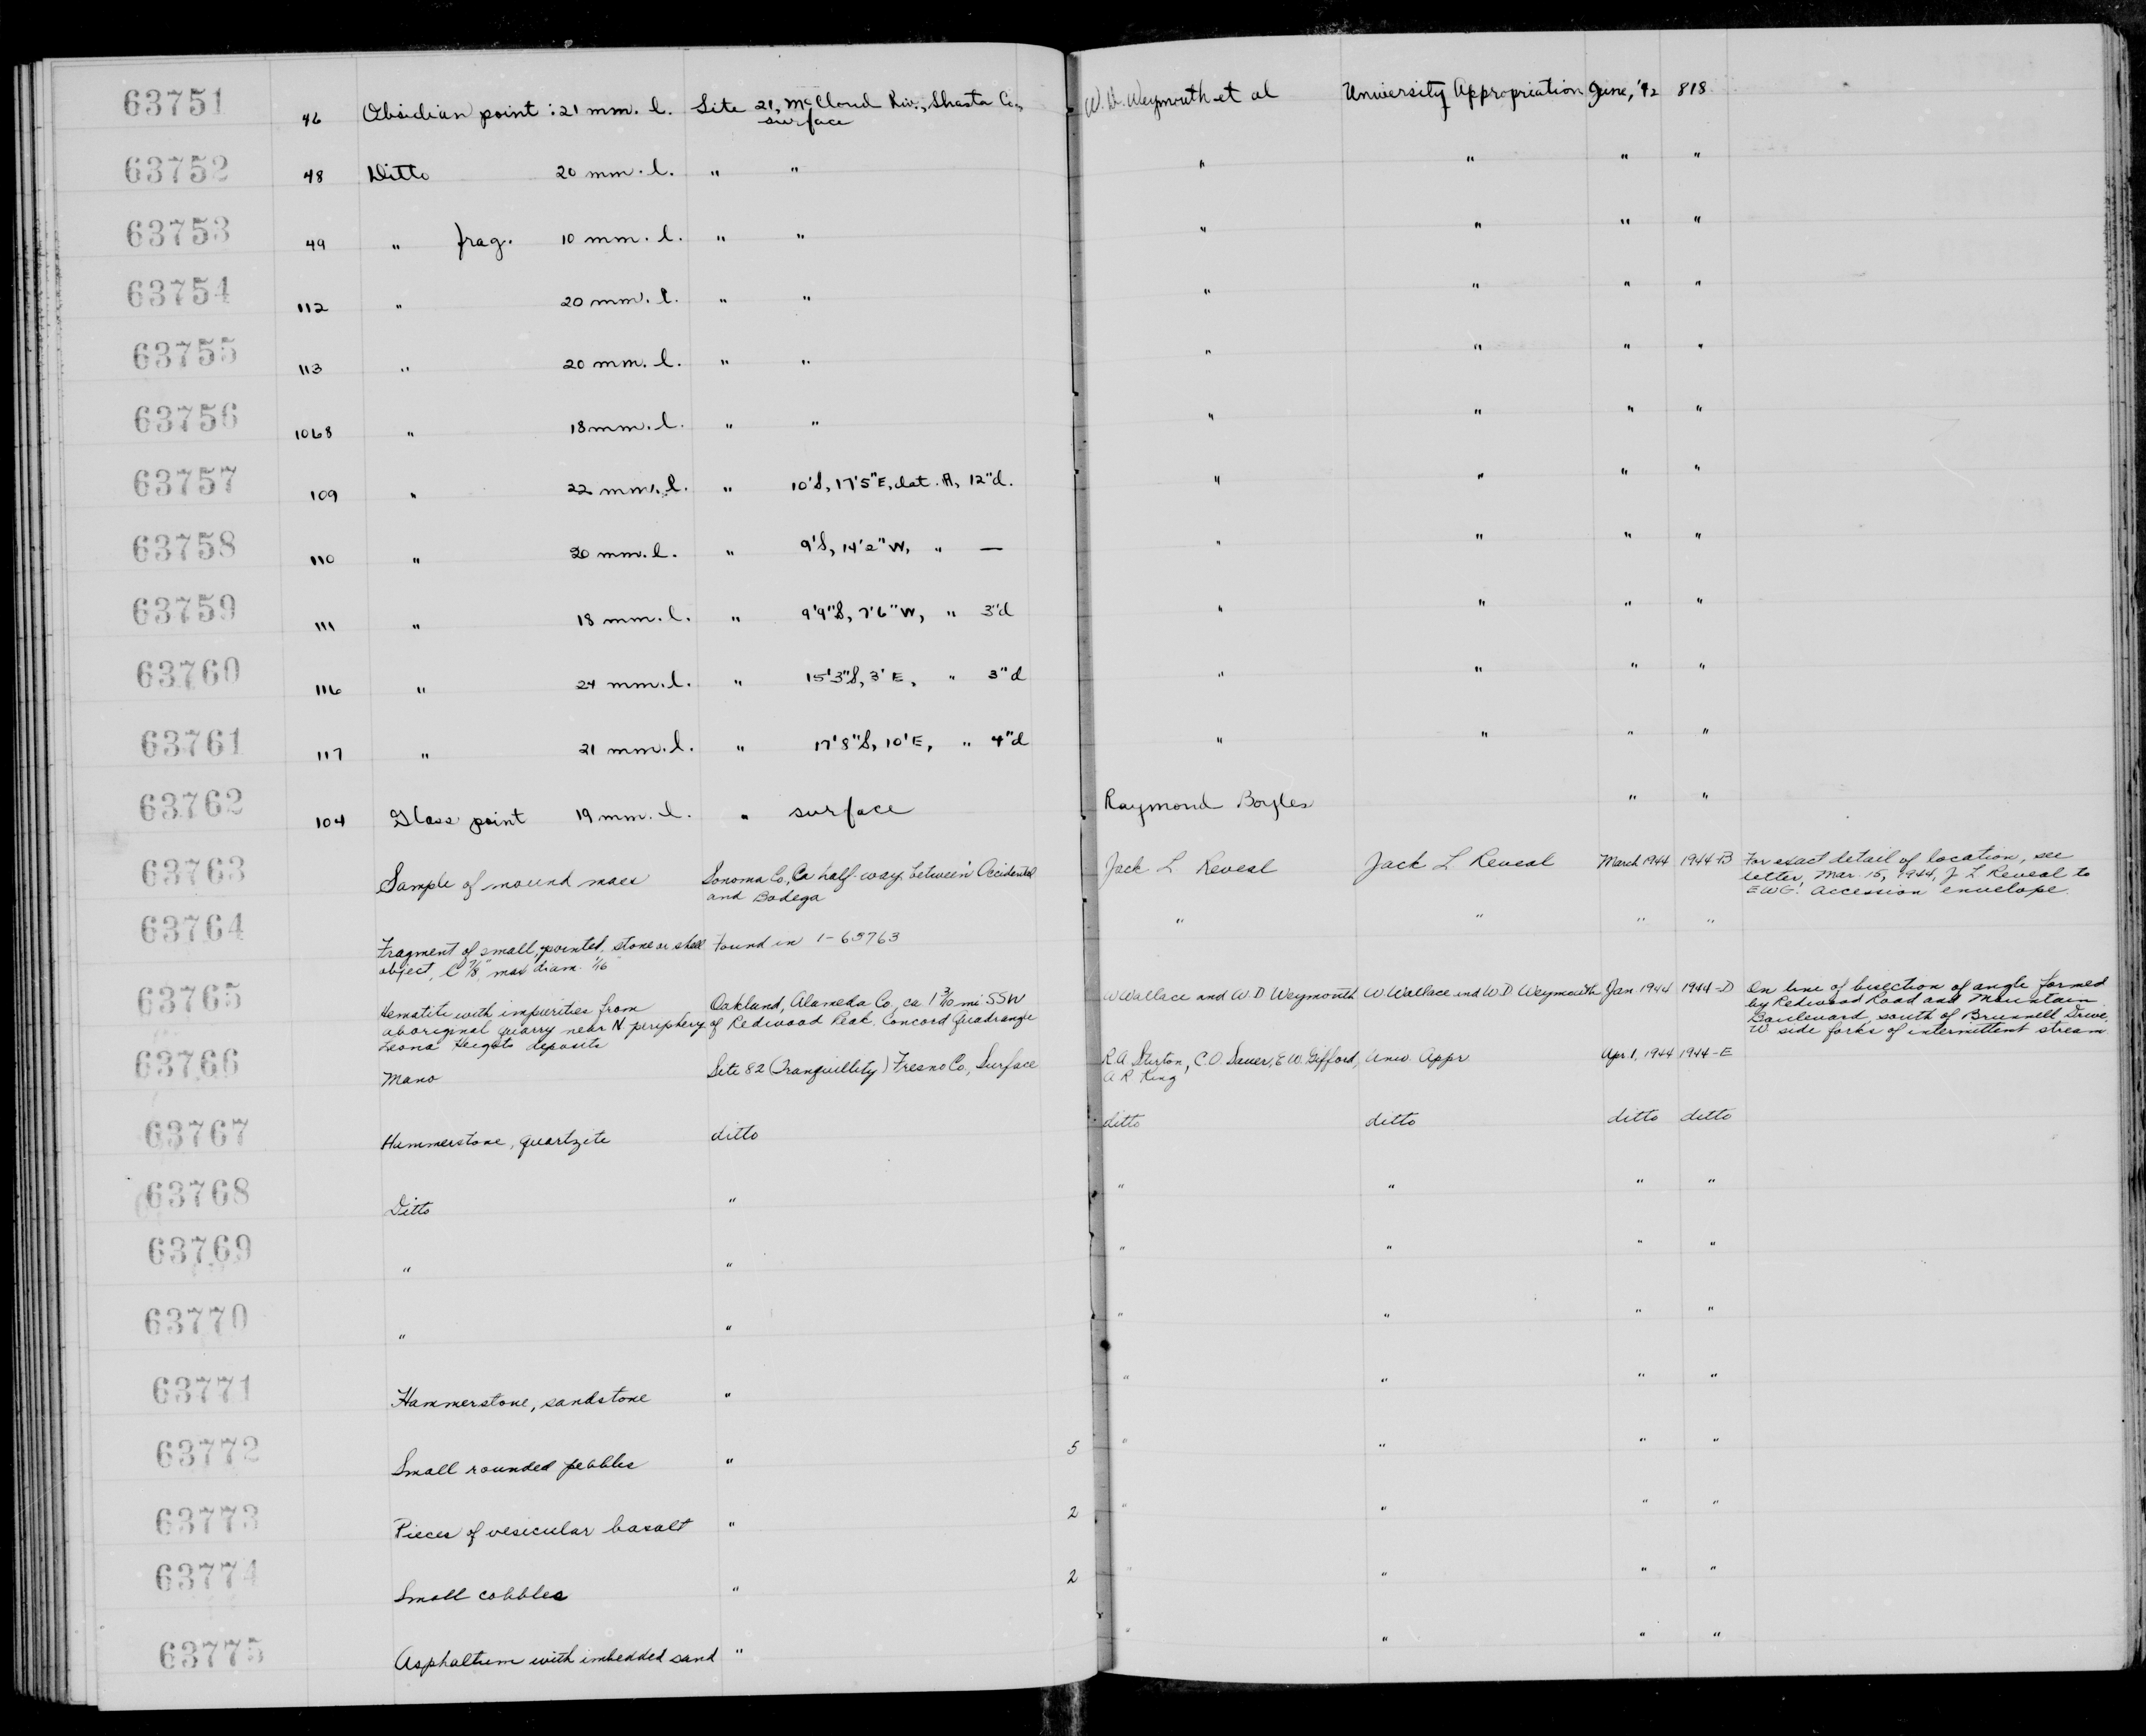 63751 46 Obsidian point : 21 mm. l. Site 21, McCloud Riv., Shasta Co., surface W. D. Weymouth et al University Appropriation June, '42 818
63752 48 Ditto 20 mm. l. " " " " " "
63753 49 " frag. 10 mm. l. " " " " " "
63754 112 " 20 mm. l. " " " " " "
63755 113 " 20 mm. l. " " " " " "
63756 1068 " 18 mm. l. " " " " " "
63757 109 " 22 mm. l. " 10'S, 17'5"E, dat. A, 12"d. " " " "
63758 110 " 20 mm. l. " 9'S, 14'2"W, " — " " " "
63759 111 " 18 mm. l. " 9'9"S, 7'6"W, " 3"d " " " "
63760 116 " 24 mm. l. " 15'3"S, 3'E, " 3"d " " " "
63761 117 " 21 mm. l. " 17'8"S, 10'E, " 4"d " " " "
63762 104 Glass point 19 mm. l. " surface Raymond Boyles " "
63763 Sample of mound mass Sonoma Co, Ca half-way between Occidental Jack L Reveal Jack L Reveal March 1944 1944-B For exact detail of location, see
and Bodega letter, Mar. 15, 1944, J L Reveal to
EWG. Accession envelope.
63764 Fragment of small, pointed, stone or shell Found in 1-63763 " " " "
object, l 7/8", max diam. 1/16"
63765 Hematite with impurities from Oakland, Alameda Co, ca 1 3/10 mi SSW W Wallace and W D Weymouth W Wallace and W D Weymouth Jan 1944 1944-D On line of bisection of angle formed
aboriginal quarry near N periphery of Redwood Peak. Concord Quadrangle by Redwood Road and Mountain
Leona Heights deposits Boulevard, south of Brunnell Drive.
W side forks of intermittent stream
63766 Mano Site 82 (Tranquillity) Fresno Co., Surface R A Stirton, C.O. Sauer, E W. Gifford, Univ. Appr Apr. 1, 1944 1944-E
A R King
63767 Hammerstone, quartzite ditto ditto ditto ditto ditto
63768 Ditto " " " " "
63769 " " " " " "
63770 " " " " " "
63771 Hammerstone, sandstone " " " " "
63772 Small rounded pebbles " 5 " " " "
63773 Pieces of vesicular basalt " 2 " " " "
63774 Small cobbles " 2 " " " "
63775 Asphaltum with imbedded sand " " " " "